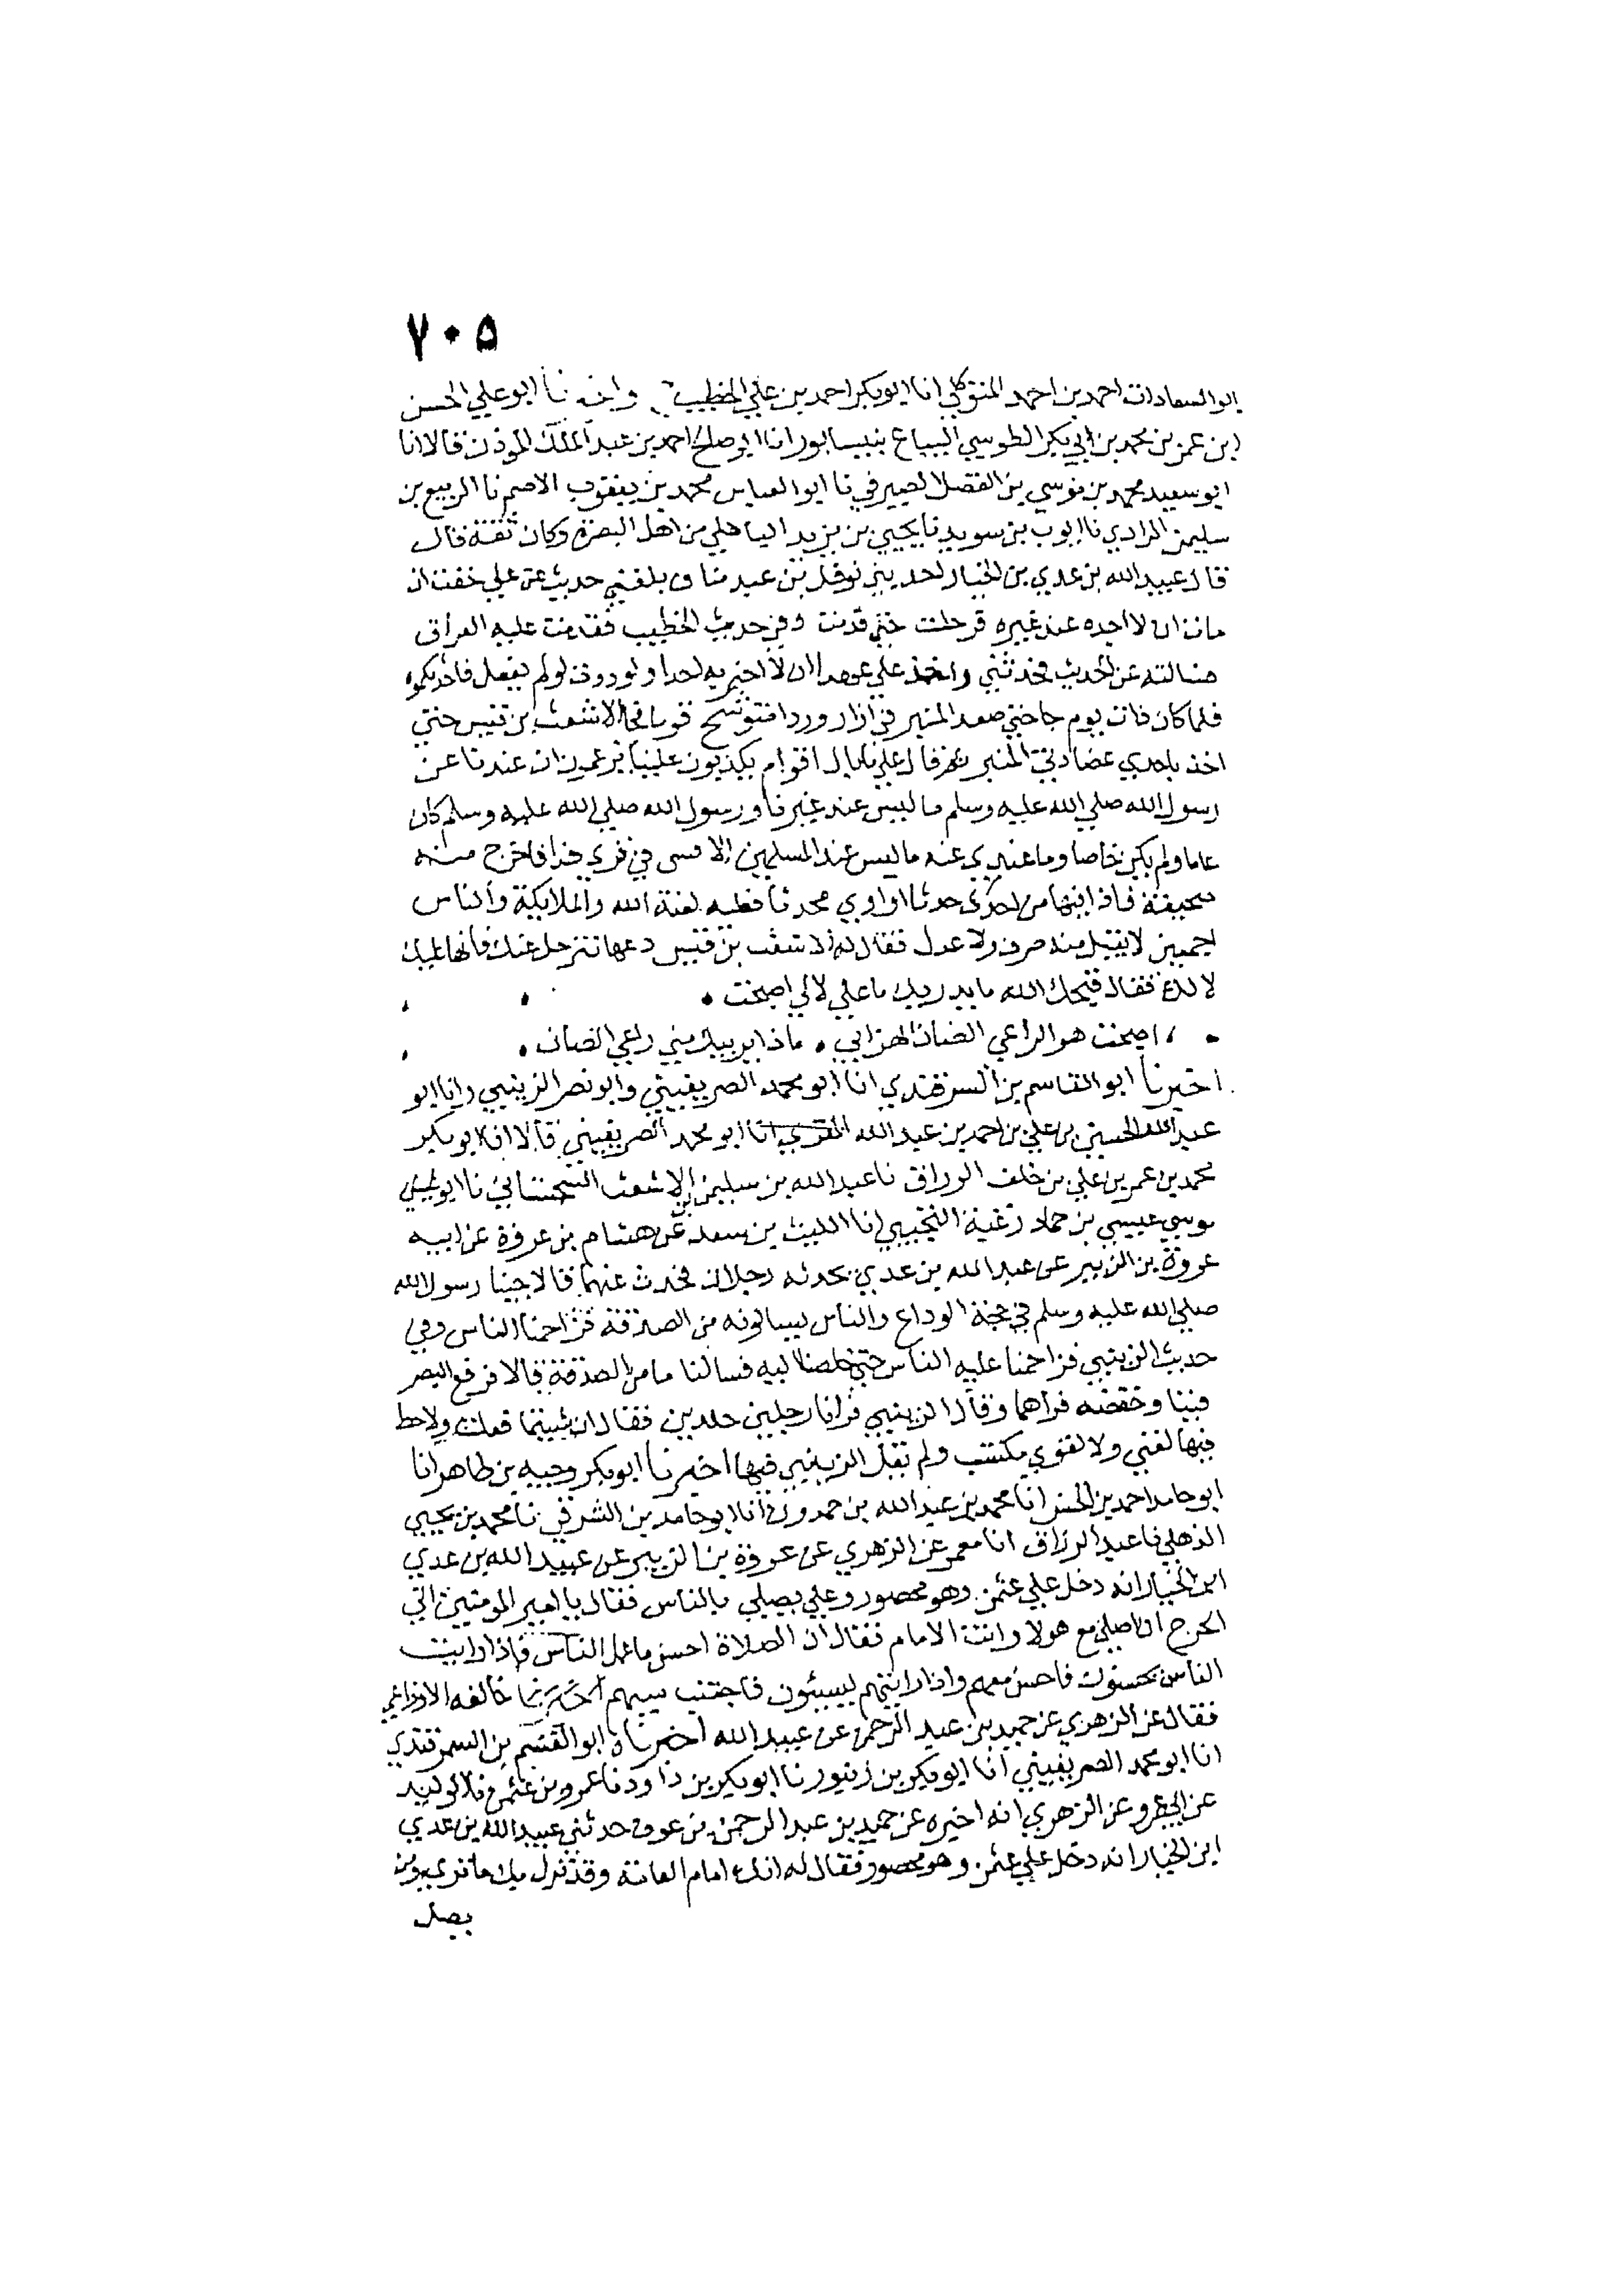 ٧٠٥
ابو السعادات احمد بن احمد المتوكلي انا ابو بكر احمد بن علي الخطيب ابو علي الحسن
ابن عمر بن محمد بن ابي بكر الطوسي البياع بنيسابور انا ابو صلح احمد بن عبد الملك المؤذن قالا نا
ابو سعيد محمد بن موسي بن الفضل الصيرفي نا ابو العباس محمد بن يعقوب الاصم نا الربيع بن
سليمن المرادي نا ايوب بن سويد نا يحيي بن يزيد الباهلي من اهل البصرة وكان ثقة قال
قال عبيد الله بن عدي بن الخيار احد بني نوفل بن عبد مناف بلغني حديث عن علي خفت ان
مات ان لا اجده عند غيره فرحلت حتي قدمت وفي حديث الخطيب فقدمت عليه العراق
فسالته عن الحديث فحدثني واخذ علي عهدا ان لا اخبر به احدا ولوددت لو لم يفعل فاحدثكموه
فلما كان ذات يوم جا حتي صعد المنبر في ازار وردا متوشح قوسا فجا الاشعث بن قيس حتي
اخذ باحدي عضادتي المنبر ثم قال علي ما بال اقوام يكذبون علينا يزعمون ان عندنا عن
رسول الله صلي الله عليه وسلم ما ليس عند غيرنا ورسول الله صلي الله عليه وسلم كان
عاما ولم يكن خاصا وما عندي عنه ما ليس عند المسلمين الا شي في قرني هذا فاخرج منه
صحيفة فاذا فيها من احدث حدثا او اوي محدثا فعليه لعنة الله والملايكة والناس
اجمعين لا يقبل منه صرف ولا عدل فقال له الاشعث بن قيس دعها تترحل عنك فانها عليك
لا لك فقال قبحك الله ما يدريك ما علي لا لي اصبحت
اصبحت هزوا لراعي الضان الهزاني ماذا يريبك مني راعي الضان
اخبرنا ابو القاسم بن السمرقندي انا ابو محمد الصريفيني وابو نصر الزينبي وانا ابو
عبد الله الحسين بن علي بن احمد بن عبد الله المقري انا ابو محمد الصريفيني قالا انا ابو بكر
محمد بن عمر بن علي بن خلف الوراق نا عبد الله بن سليمن بن الاشعث السجستاني نا ابو
موسي عيسي بن حماد زغبة التجيبي انا الليث بن سعد عن هشام بن عروة عن ابيه
عروة بن الزبير عن عبد الله بن عدي بحدثه رجلان فحدث عنهما قالا جينا رسول الله
صلي الله عليه وسلم في حجة الوداع والناس يسالونه من الصدقة فزاحمنا الناس وفي
حديث الزينبي فزاحمنا عليه الناس حتي خلصنا اليه فسالنا ما من الصدقة قالا فرفع البصر
فينا وخفضه فراهما وقال الزينبي فرانا رجلين جلدين فقال ان شيتما فعلت ولا حظ
فيها لغني ولا لقوي مكتسب ولم يقل الزينبي فيها اخبرنا ابو بكر وجيه بن طاهر انا
ابو حامد احمد بن الحسن انا محمد بن عبد الله بن حمدون انا ابو حامد بن الشرقي نا محمد بن يحيي
الذهلي نا عبد الرزاق انا معمر عن الزهري عن عروة بن الزبير عن عبيد الله بن عدي
ابن الخيار انه دخل علي عثمن وهو محصور وعلي يصلي بالناس فقال يا امير المومنين اني
اتحرج ان اصلي مع هولا وانت الامام فقال ان الصلاة احسن ما عمل الناس فاذا رايت
الناس يحسنون فاحسن معهم واذا رايتهم يسيئون فاجتنب سيهم خالفه الاوزاعي
فقال عن الزهري عن حميد بن عبد الرحمن عن عبيد الله اخبرناه ابو القسم بن السمرقندي
انا ابو محمد الصريفيني انا ابو بكر بن زنبور نا ابو بكر بن داود نا عمرو بن عثمن نا الوليد
عن ابي عمرو عن الزهري انه اخبره عن حميد بن عبد الرحمن بن عوف حدثني عبيد الله بن عدي
ابن الخيار انه دخل علي عثمن وهو محصور فقال له انك امام العامة وقد نزل بك ما تري
يصل